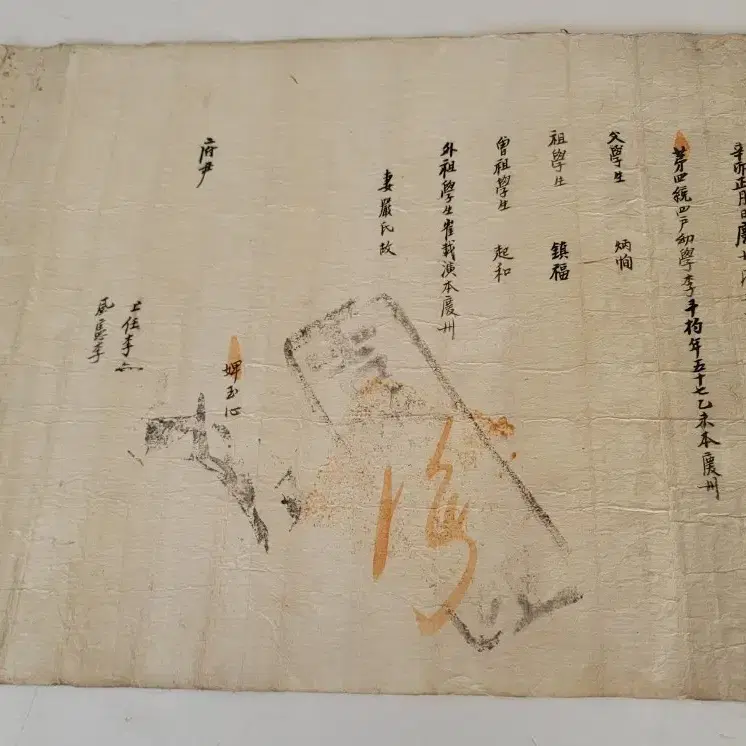 辛卯正月日慶州
第四統四戶幼學李斗杓年五十七乙未本慶州
父學生 炳恂
祖學生 鎮福
曾祖學生 起和
外祖學生崔載演本慶州
妻嚴氏故
婢玉心
府尹
上任李
風憲李